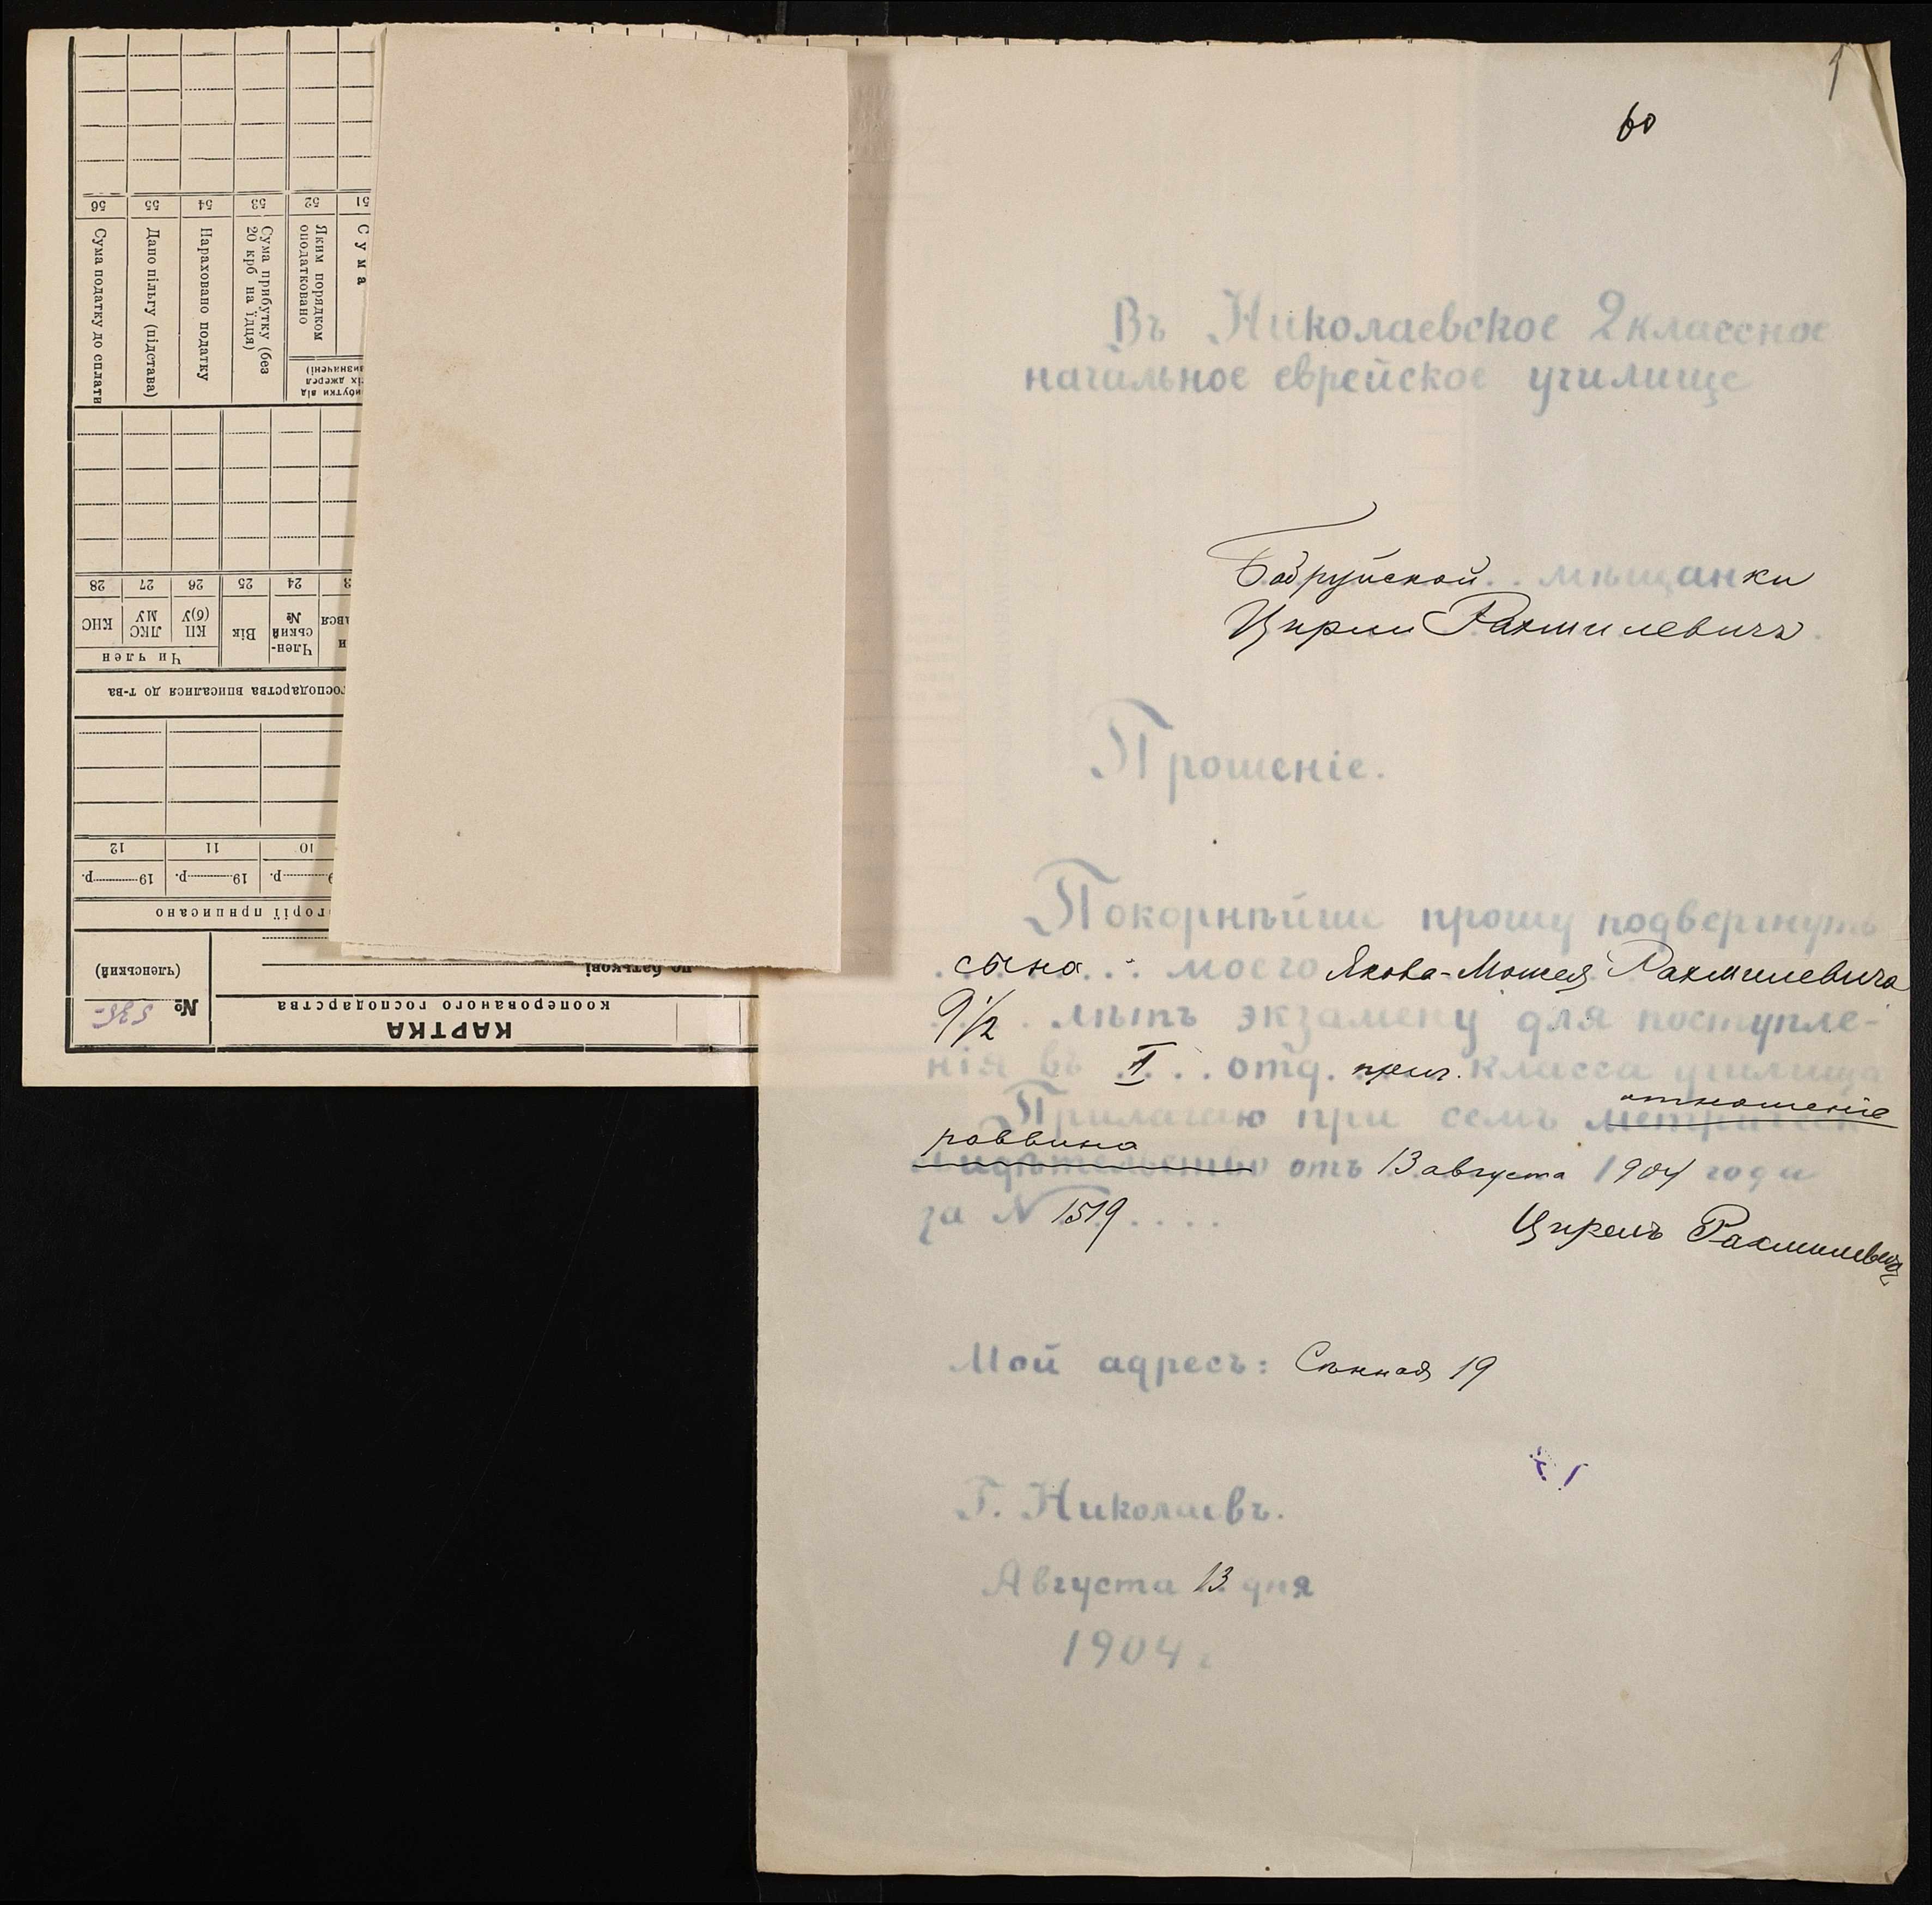 1
60
Въ Николаевское 2 классное
начальное еврейское училище
Бобруйской . . мѣщанки
Цирли Рахмилевичъ
Прошеніе.
Покорнѣйше прошу подвергнуть
сына . . . моего Якова-Мошея Рахмилевича
9 1/2 . лѣтъ экзамену для поступле-
нія въ I . . . отд. приг. класса училища
Прилагаю при семъ метрическ отношеніе
раввина
свидѣтельство отъ 13 августа 1904 года
за № 1519 . . . .
Цирель Рахмилевичъ
Мой адресъ: Сѣнная 19
Г. Николаевъ.
Августа 13 дня
1904 г
КАРТКА
кооперованого господарства
№ 525
(членський)
по батькові
горії приписано
19 р. 19 р. р.
10 11 12
господарства вписалися до т-ва
Чи член
Член-ський №
Вік
КП (б)У
ЛКС МУ
КНС
24 25 26 27 28
Сума
Яким порядком оподатковано
Сума прибутку (без 20 крб на їдця)
Нараховано податку
Дано пільгу (підстава)
Сума податку до сплати
51 52 53 54 55 56